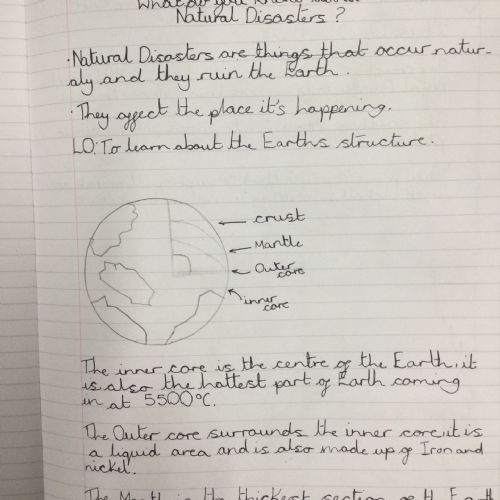 What do you know about
Natural Disasters?
·Natural Disasters are things that occur natur-
aly and they ruin the Earth.
·They affect the place it's happening.
LO: To learn about the Earths structure.
crust
Mantle
Outer
core
inner
core
The inner core is the centre of the Earth, it
is also the hottest part of Earth coming
in at 5500°C.
The Outer core surrounds the inner core, it is
a liquid area and is also made up of Iron and
nickel.
The Mantle is the thickest section of the Earth